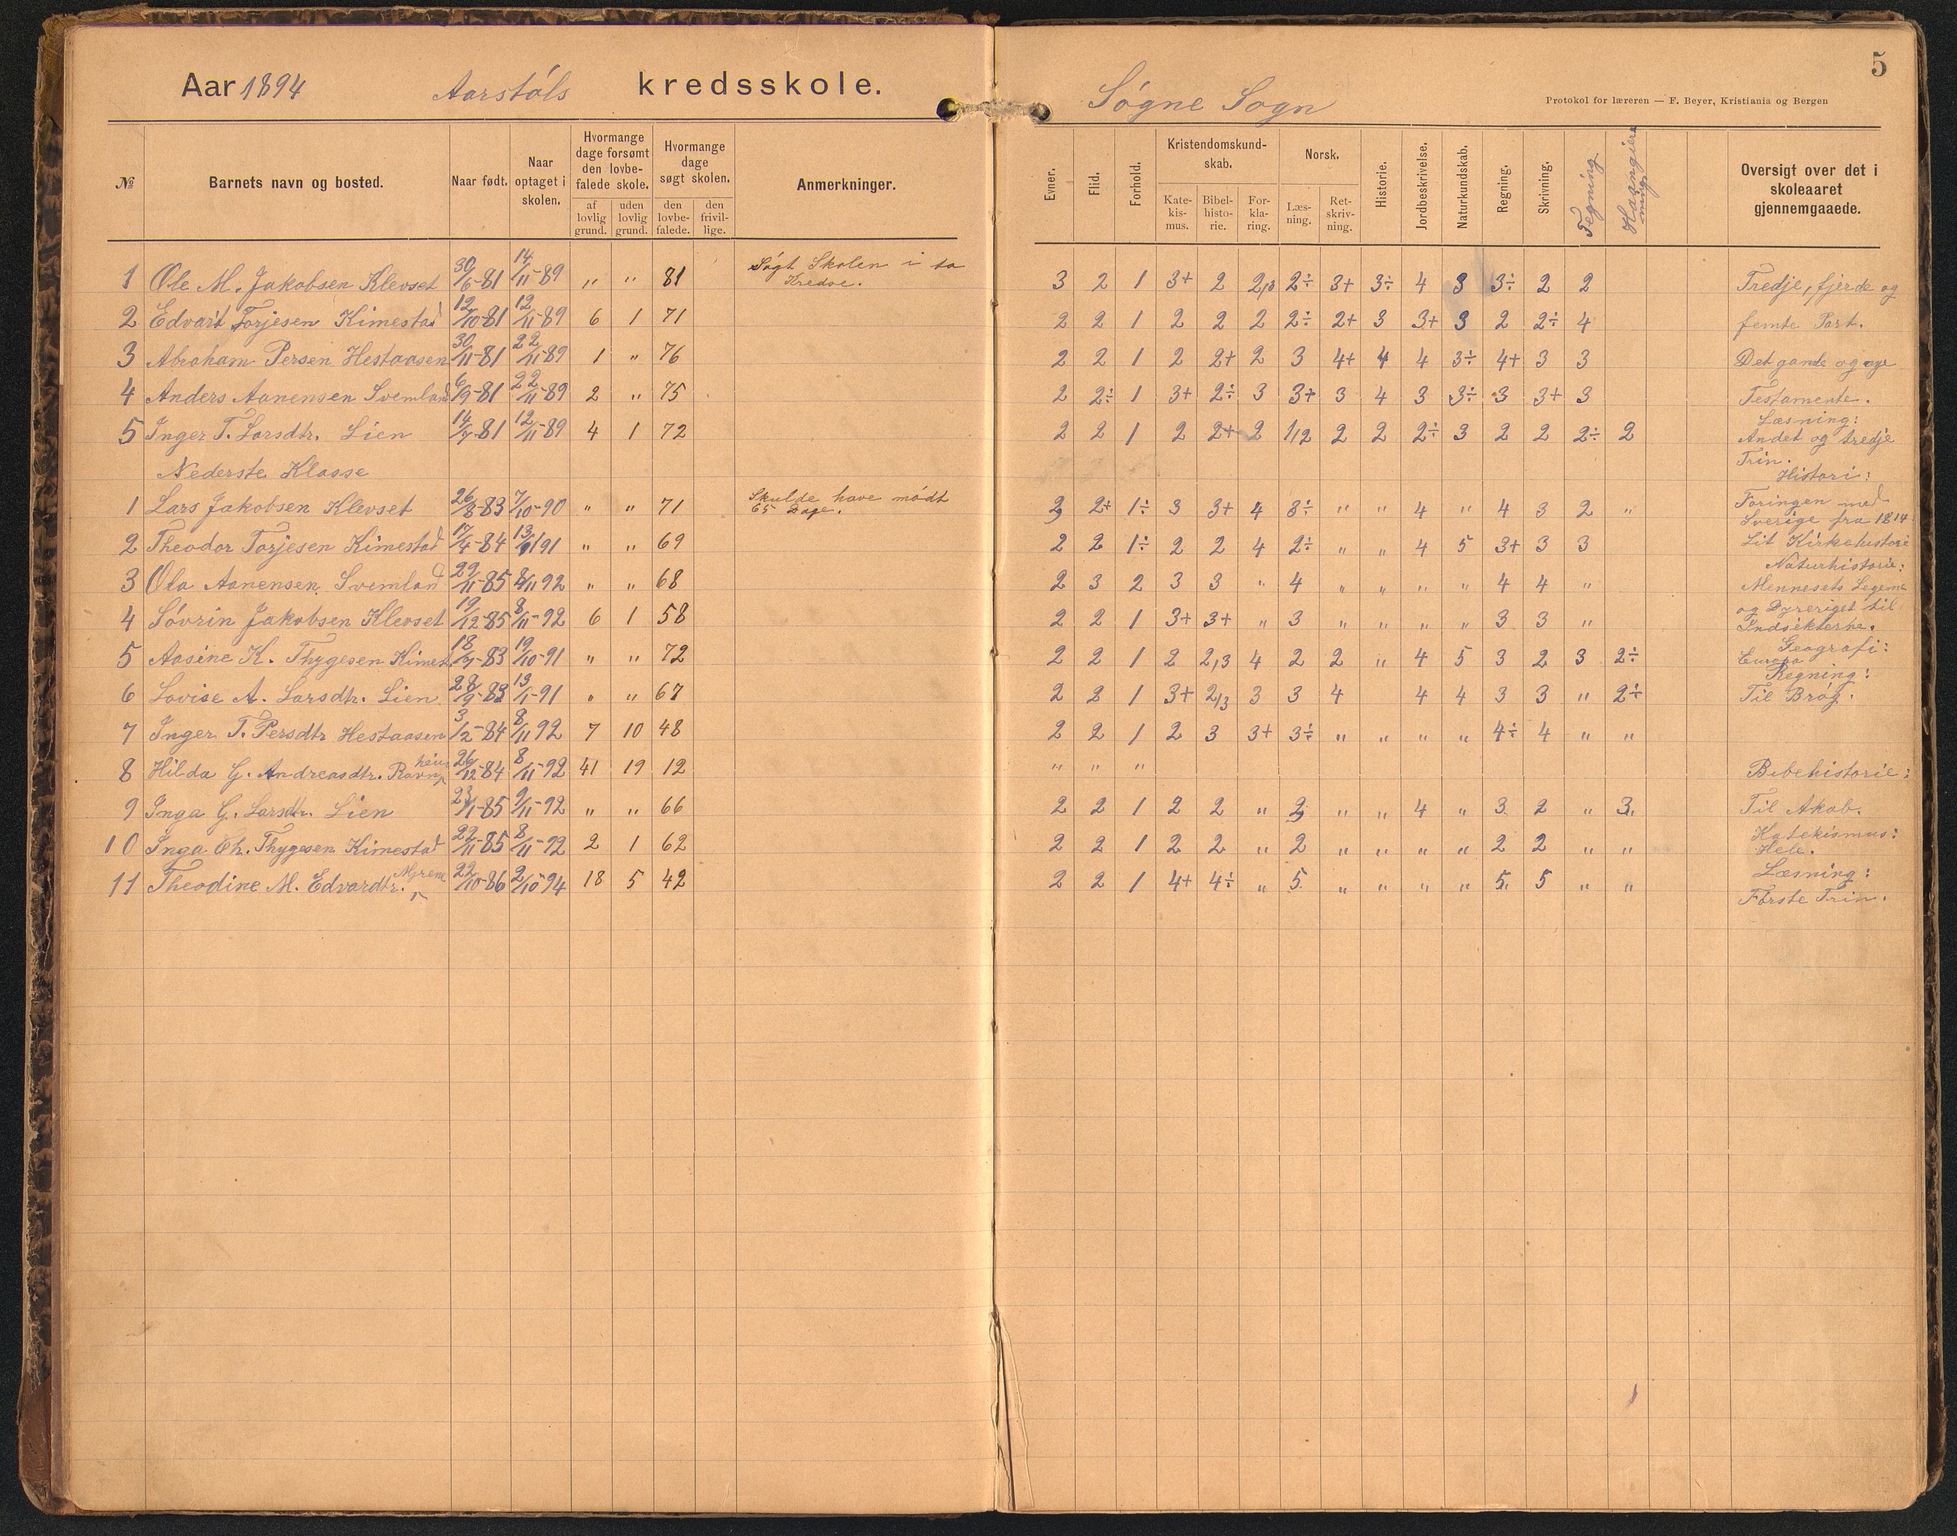 5
Aar 1894 Aarstóls kredsskole. Sógne Sogn
Protokol for læreren — F. Beyer, Kristiania og Bergen
№ Barnets navn og bosted. Naar født. Naar optaget i skolen. Hvormange dage forsømt den lovbefalede skole. af lovlig grund. uden lovlig grund. Hvormange dage søgt skolen. den lovbefalede. den frivillige. Anmerkninger. Evner. Flid. Forhold. Kristendomskundskab. Katekismus. Bibelhistorie. Forklaring. Norsk. Læsning. Retskrivning. Historie. Jordbeskrivelse. Naturkundskab. Regning. Skrivning. Tegning Oversigt over det i skoleaaret gjennemgaaede.
1 Ole M. Jakobsen Klevset 30/6-81 14/11-89 „ „ 81 Sógt Skolen i to Kredse. 3 2 1 3+ 2 2/3 2÷ 3+ 3÷ 4 3 3÷ 2 2 Tredje, fjerde og
2 Edvart Torjesen Kimestad 12/10-81 12/11-89 6 1 71 2 2 1 2 2 2 2÷ 2+ 3 3+ 3 2 2÷ 4 femte Part.
3 Abraham Persen Hestaasen 30/11-81 22/11-89 1 „ 76 2 2 1 2 2+ 2 3 4+ 4 4 3÷ 4+ 3 3 Det gamle og nye
4 Anders Aanensen Svemlad 6/9-81 22/11-89 2 „ 75 2 2÷ 1 3+ 2÷ 3 3+ 3 4 3 3÷ 3 3+ 3 Testamente.
Læsning:
5 Inger T. Larsdtr. Lien 14/7-81 12/11-89 4 1 72 2 2 1 2 2+ 2 1/2 2 2 2÷ 3 2 2 2÷ 2 Andet og tredje
Trin.
Nederste Klasse Histori:
1 Lars Jakobsen Klevset 26/8-83 7/10-90 „ „ 71 Skulde have módt 65 Dage. 2 2+ 1÷ 3 3+ 4 3÷ „ „ 4 „ 4 3 2 „ Foringen med
Sverige fra 1814
2 Theodor Torjesen Kimestad 17/4-84 „ „ 69 2 2 1÷ 2 2 4 2÷ „ „ 4 5 3+ 3 3 Lit Kirkehistorie
Naturhistorie:
3 Ola Aanensen Svemlad 29/11-85 8/11 92 „ „ 68 2 3 2 3 3 „ 4 „ „ „ „ 4 4 „ Mennesets Legeme
og Dyreriget til
4 Sóvrin Jakobsen Klevset 19/12-85 8/11-92 6 1 58 2 2 1 3+ 3+ „ 3 „ „ „ „ 3 3 „ Indsekterne.
Geografi:
5 Aasine K. Thygesen Kimest 18/7-83 19/10-91 „ „ 72 2 2 1 2 2/3 4 2 2 „ 4 5 3 2 3 2÷ Europa
Regning:
6 Lovise A. Larsdtr. Lien 28/9-83 13/1-91 „ „ 67 2 2 1 3+ 2/3 3 3 4 4 4 3 3 „ 2÷ Til Bróg.
7 Inger T. Persdtr Hestaasen 3/2-84 8/11 92 7 10 48 2 2 1 2 3 3+ 3÷ „ „ „ „ 4÷ 4 „ „
8 Hilda G. Andreasdtr. Ravnheia 26/12-84 8/11-92 41 19 12 „ „ „ Bibehistorie:
9 Inga G. Larsdtr. Lien 23/1-85 9/11-92 „ „ 66 2 2 1 2 2 „ 2 „ „ 4 „ 3 2 „ 3 Til Akab.
Katekismus:
10 Inga Ch. Thygesen Kimestad 22/11-85 8/11-92 2 1 62 2 2 1 2 2 „ 2 „ „ „ „ 2 2 „ „ Hele.
11 Theodine M. Edvardtr. 22/10-86 2/10-94 18 5 42 2 2 1 4+ 4÷ „ 5 „ „ „ „ 5 5 „ „ Læsning:
Fórste Trin.